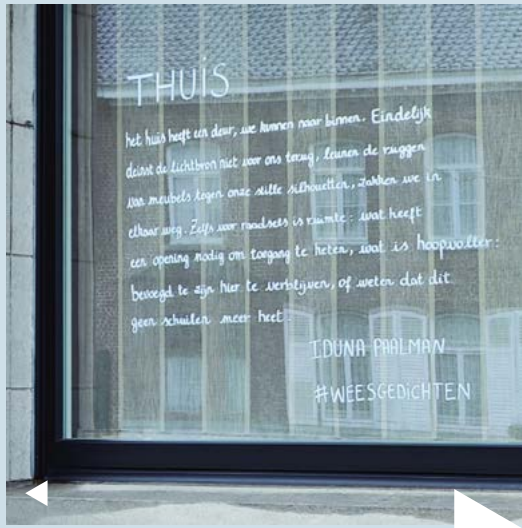 THUIS
het huis heeft een deur, we kunnen naar binnen. Eindelijk
deinst de lichtbron niet voor ons terug, leunen de ruggen
van meubels tegen onze stille silhouetten, zakken we in
elkaar weg. Zelfs voor raadsels is ruimte: wat heeft
een opening nodig om toegang te heten, wat is hoopvoller:
bevoegd te zijn hier te verblijven, of weten dat dit
geen schuilen meer heet.
IDUNA PAALMAN
#WEESGEDICHTEN